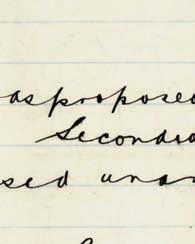 as proposed
Seconded
sed unan